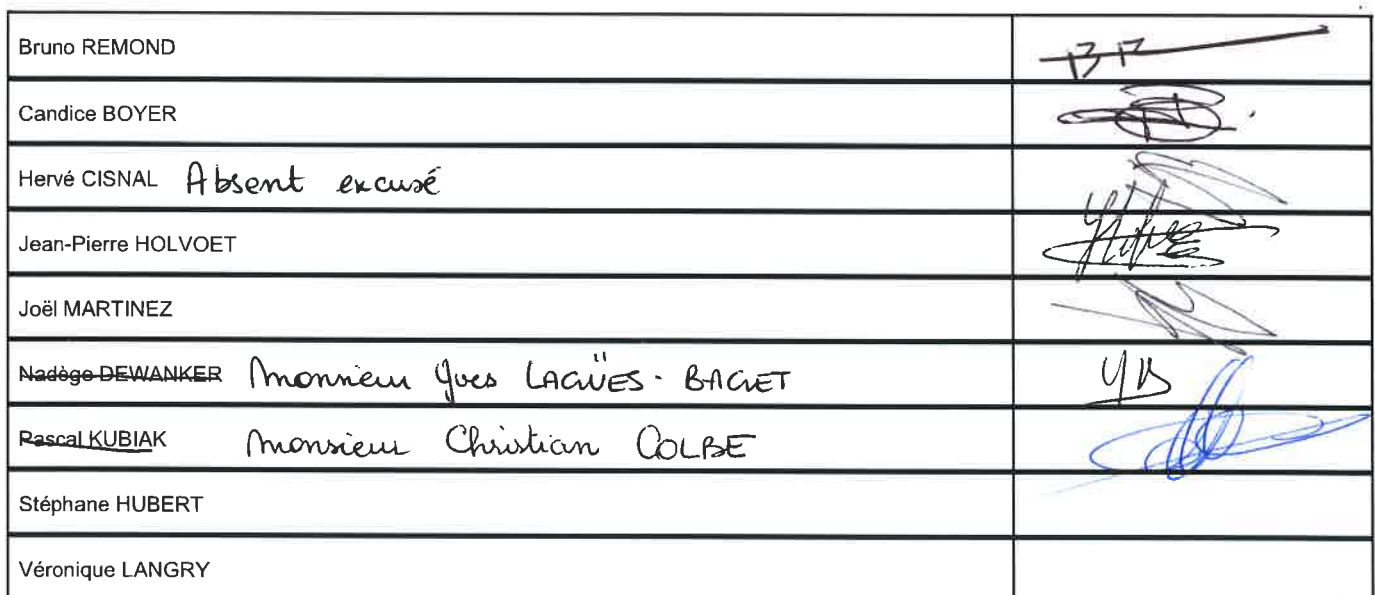 Bruno REMOND BR
Candice BOYER
Hervé CISNAL Absent excusé
Jean-Pierre HOLVOET
Joël MARTINEZ
Nadège DEWANKER Monsieur Yves LAGÜES-BAGET YB
Pascal KUBIAK Monsieur Christian COLBE
Stéphane HUBERT
Véronique LANGRY